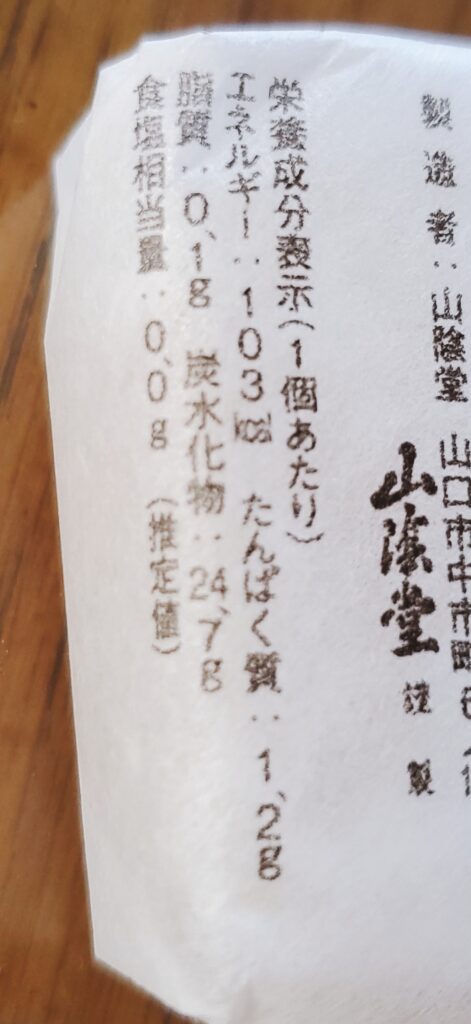 製造者：山陰堂 山口市中市町6
山陰堂 謹製
栄養成分表示（1個あたり）
エネルギー：103kcal たんぱく質：1.2g
脂質：0.1g 炭水化物：24.7g
食塩相当量：0.0g（推定値）